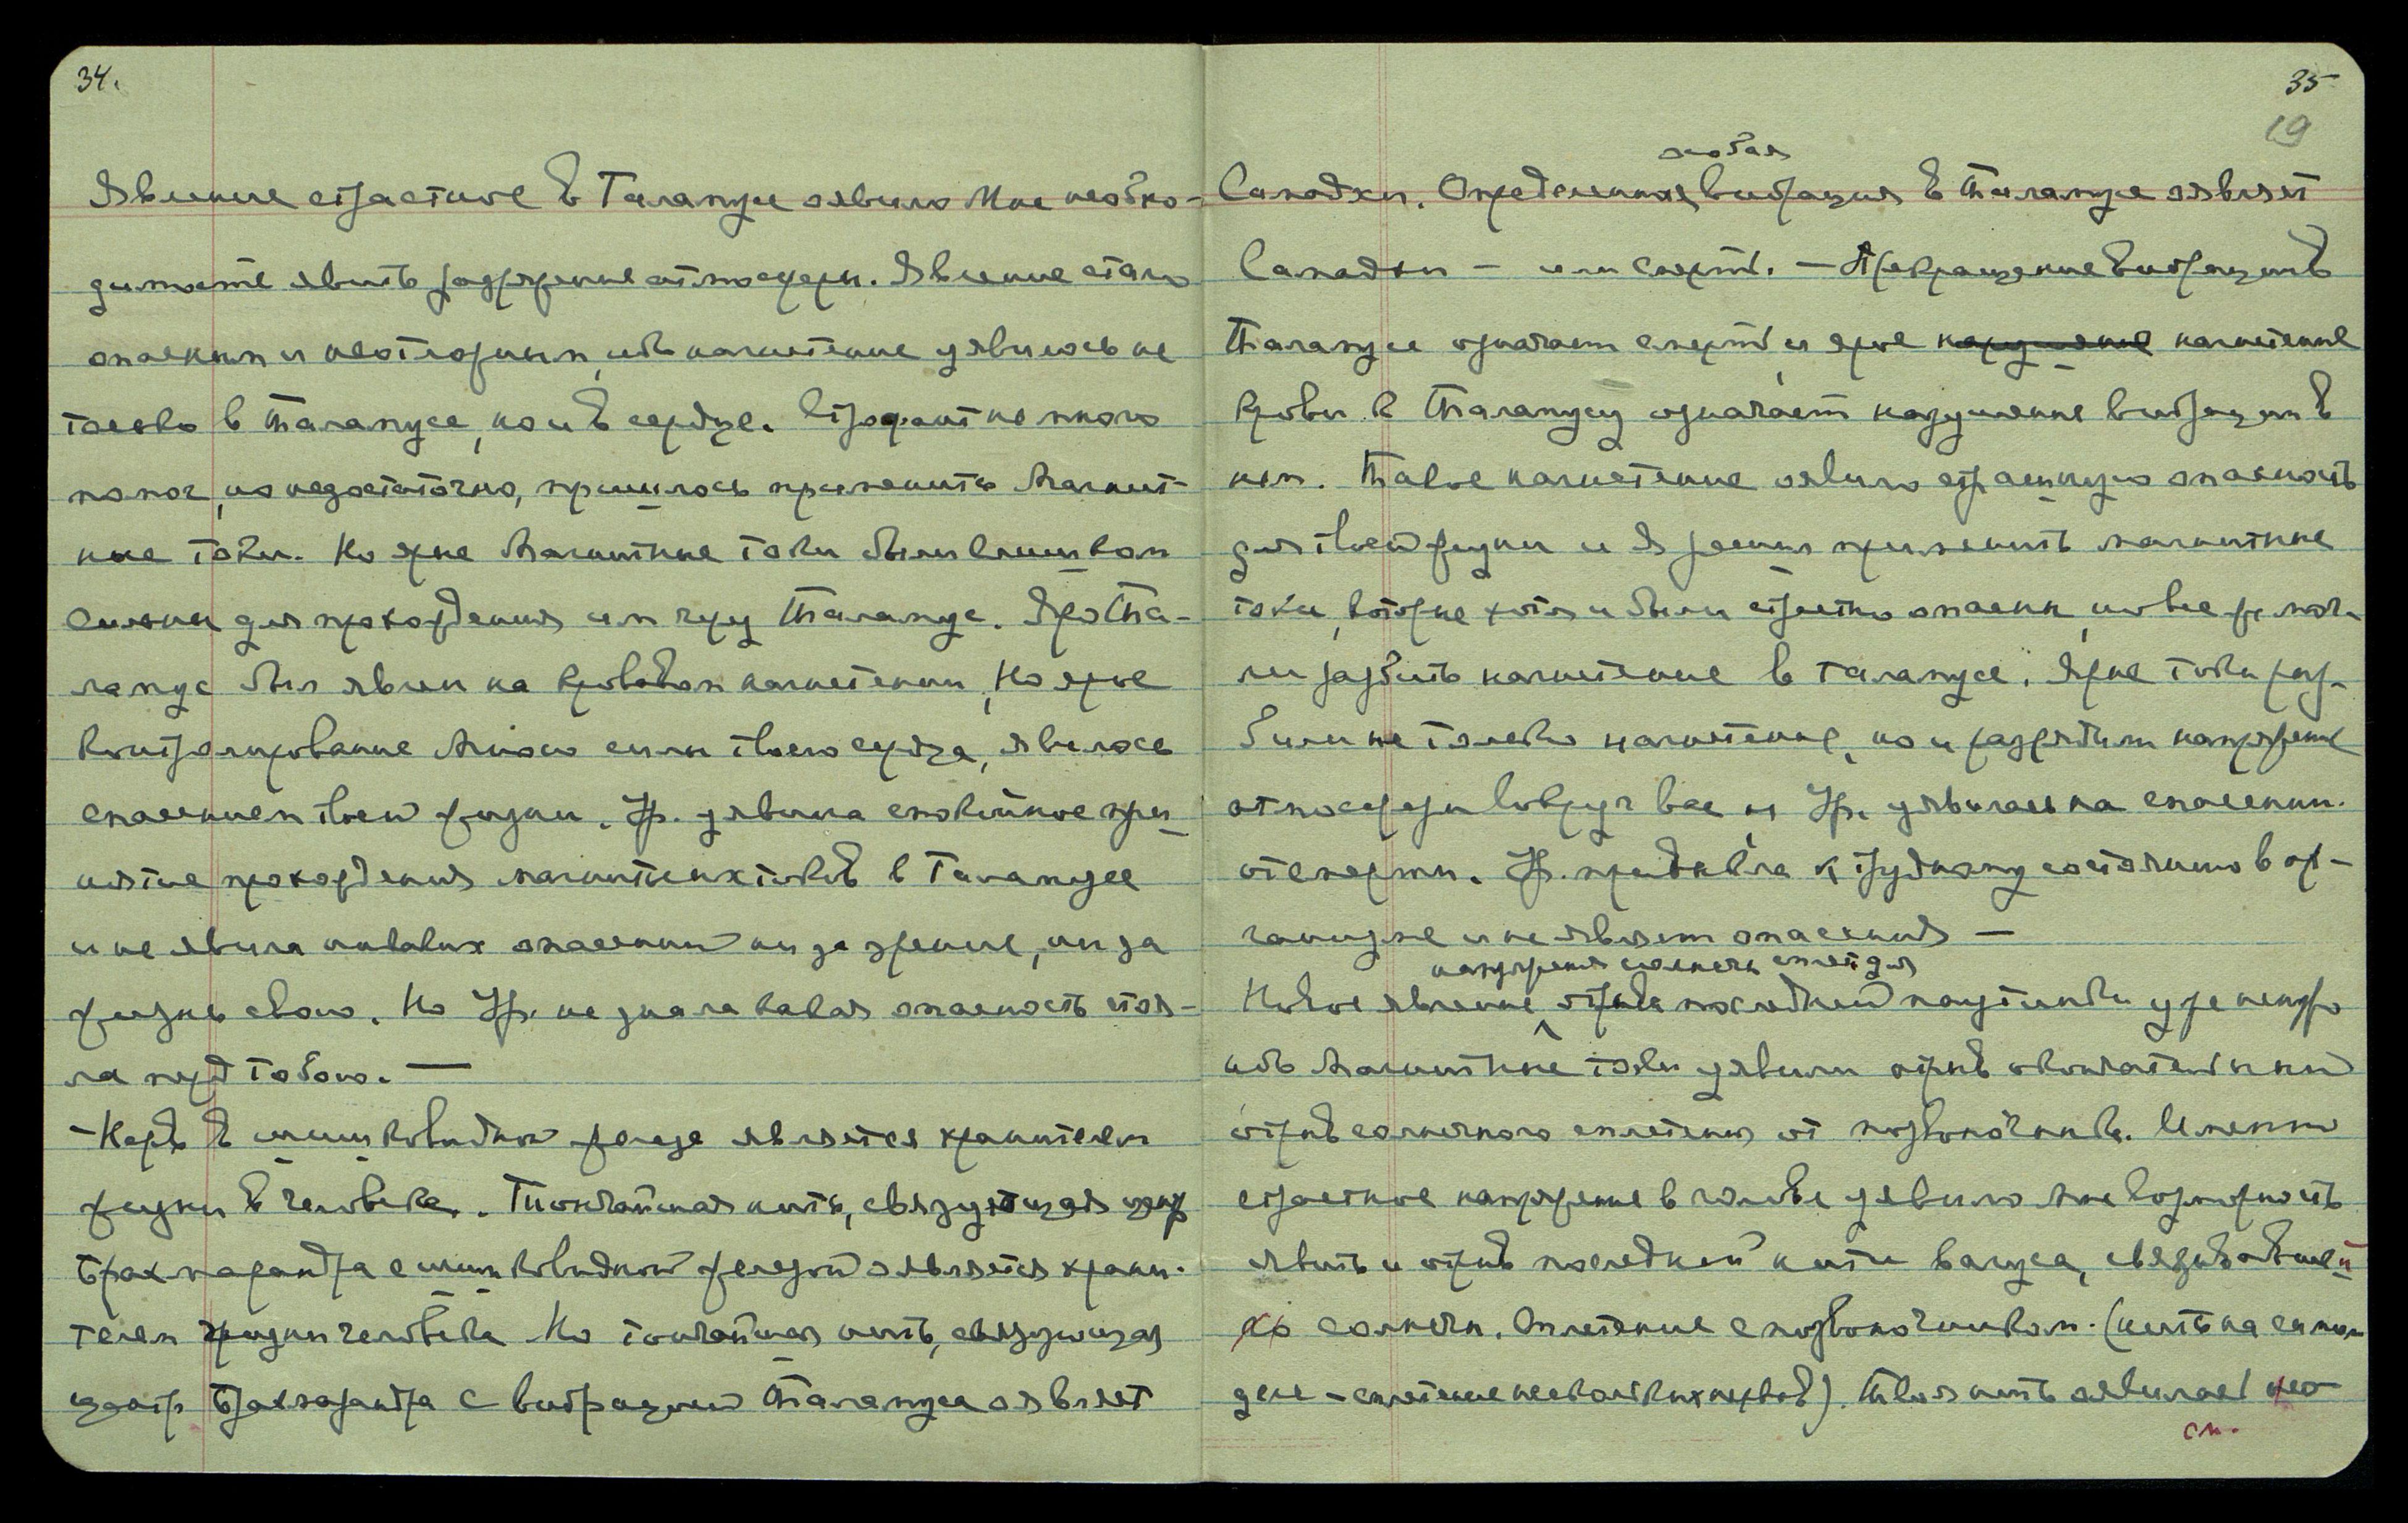 34.
Явление страстное в Таламусе оявило Мне необхо-
димость явить разряжение атмосферы. Явление стало
опасным и неотложным, ибо нагнетение уявилось не
только в Таламусе, но и в сердце. Строфант но много
помог, но недостаточно, пришлось применить Магнит-
ные токи. Но ярые Магнитные токи были слишком
сильны для прохождения им через Таламус. Яро Та-
ламус был явлен на кровавом нагнетении, но ярое
контролирование Мною силы твоего сердца, явилось
спасением твоей жизни. Ур. уявила спокойное при-
нятие прохождения магнитных токов в Таламусе
и не явила никаких опасений ни за зрение, ни за
жизнь свою. Но Ур. не знала какая опасность стоя-
ла перед тобою. —
- Нерв в шишковидной железе является хранителем
жизни в человеке. Тончайшая нить, связующая центр
Брахмарандра с шишковидной железой оявляется храни-
телем жизни человека Но тончайшая нить, связующая
центр Брахмарандра с вибрацией Таламуса оявляет
35
19
особая
Самадхи. Определенная вибрация в Таламусе оявляет
Самадхи - или смерть. - Прекращение вибрации в
Таламусе означает смерть и ярое нарушение нагнетение
крови к Таламусу означает нарушение вибрации в
нем. Такое нагнетение оявило страшную опасность
для твоей жизни и Я решил применить магнитные
токи, которые хотя и были страстно опасны, но все же мог-
ли разбить нагнетение в таламусе. Ярые токи раз-
били не только нагнетение, но и разрядили напряжение
атмосферы вокруг вас и Ур. уявилась на спасении
от смерти. Ур. привыкла к трудному состоянию в ор-
ганизме и не являет опасения —
напряжения солнечн. сплет. для
Новое явление отрыва последней паутинки уже не нужно
ибо Магнитные токи уявили отрыв окончательный
отрыв солнечного сплетения от позвоночника. Именно
страстное напряжение в голове уявило Мне возможность
явить и отрыв последней нити вагуса, связывавшей
солнечн. сплетение с позвоночником. (нить на самом
деле - сплетение нескольких нервов). Такая нить оявилась нео-
см.